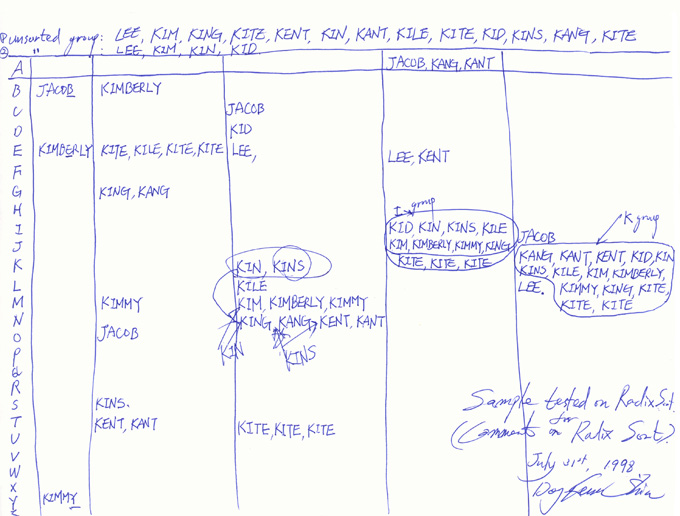 ① unsorted group: LEE, KIM, KING, KITE, KENT, KIN, KANT, KILE, KITE, KID, KINS, KANG, KITE
② " : LEE, KIM, KIN, KID
A JACOB, KANG, KANT
B JACOB KIMBERLY
C JACOB
D KID
E KIMBERLY KITE, KILE, KITE, KITE LEE, LEE, KENT
F
G KING, KANG
H I group K group
I KID, KIN, KINS, KILE
J KIM, KIMBERLY, KIMMY, KING JACOB
K KIN, KINS KITE, KITE, KITE KANG, KANT, KENT, KID, KIN
KINS, KILE, KIM, KIMBERLY,
L KILE LEE. KIMMY, KING, KITE,
M KIMMY KIM, KIMBERLY, KIMMY KITE, KITE
N KING, KANG, KENT, KANT
O JACOB
P KIN KINS
Q
R
S KINS. Sample tested on Radix Sort.
for
T KENT, KANT KITE, KITE, KITE (Comments on Radix Sort).
U
V July 31st, 1998.
W
X
Y KIMMY